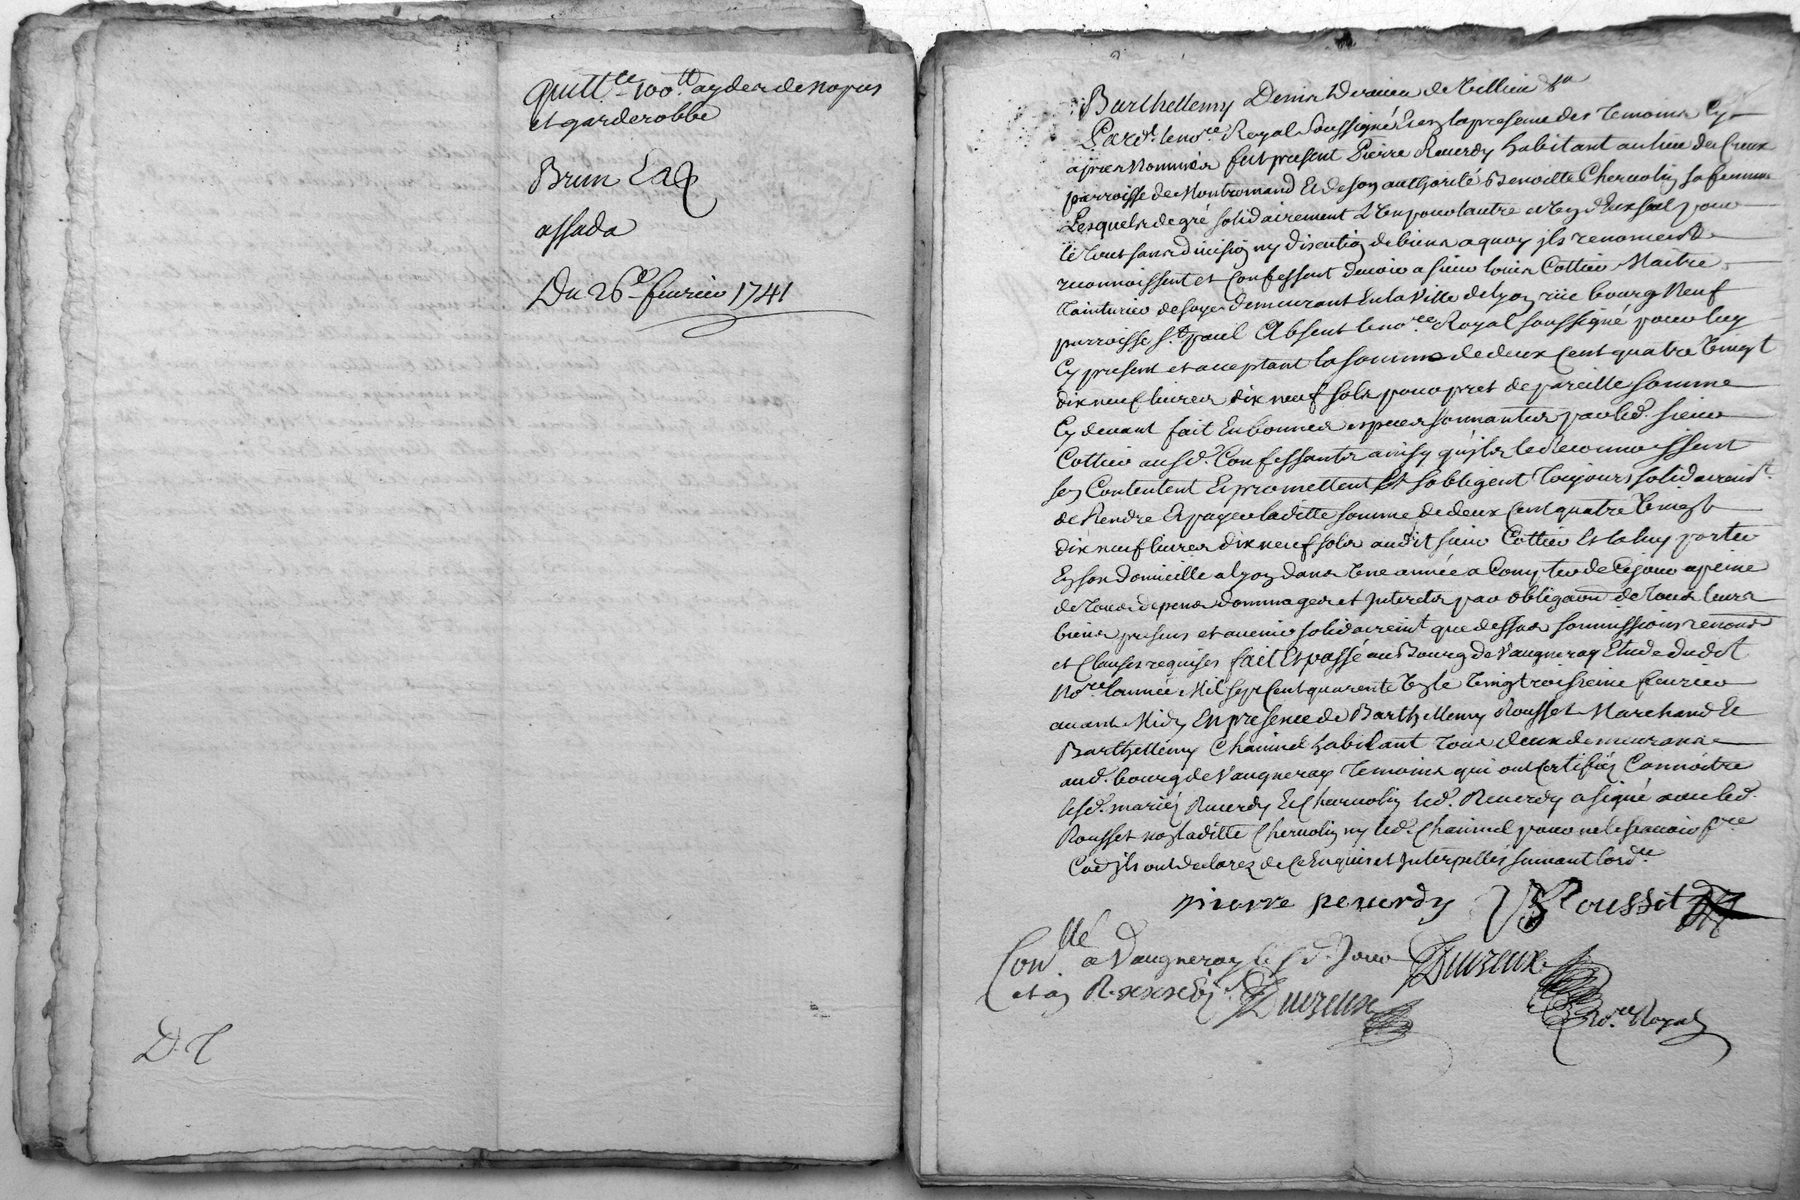 quitt.ce 100.tt aydes de nopces
et garderobbe
Brun
assada
Du 26.e fevrier 1741
D. T
Barthellemy Denis
Pard.t le no.re Royal soussigné Et en la presence des Temoins Cy
apres nommés fut present Pierre Reverdy habitant au lieu du Creux
parroisse de Montromand Et de son authorité Benoitte Chermolin sa femme
Lesquels de gré solidairement L'un pour l'autre et un d'Eux seul pour
le tout sans division ny discution de biens a quoy ils renoncent
reconnoissent et Confessent devoir a sieur louis Cottier Maitre
Tainturier de soye demeurant En la Ville de lyon rüe bourg Neuf
parroisse s.t paul Absent le no.re Royal soussigné pour luy
Cy present et acceptant la somme de deux Cent quatre Vingt
dix neuf livres dix neuf sols pour pret de pareille somme
Cy devant fait En bonnes especes sonnantes par led. sieur
Cottier ausd. Confessants ainsy qu'ils le Reconnoissent
s'en Contentent Et promettent Et s'obligent Toujours solidairem.t
de Rendre Et payer laditte somme de deux Cent quatre Vingt
dix neuf livres dix neuf sols audit sieur Cottier Et la luy porter
En son domicille a lyon dans Une année a Compter de Ce jour a peine
de Tous depens dommages et Interets par obligaon de Tous leurs
biens presens et avenir solidairemt que dessus soumissions renonc
et Clauses requises fait Et passé au Bourg de Vaugneray Etude dudit
No.re l'année Mil sept Cent quarente Un le Vingt troisieme fevrier
avant Midy En presence de Barthellemy Rousset Marchand Et
Barthellemy Chainel habitant Tous deux demeurans
aud. bourg de Vaugneray Temoins qui ont Certifiés Connoitre
lesd. mariés Reverdy Et Chermolin led. Reverdy a signé avec led.
Rousset non laditte Chermolin ny led. Chainel pour ne le sçavoir f.re
Co͞e ils ont declarez de Ce Enquis et Interpellés suivant l'ord.ce
pierre reverdy Rousset
Con.llé a Vaugneray le d. Jour Duvreux
et an R. Duvreux
No.re Royal